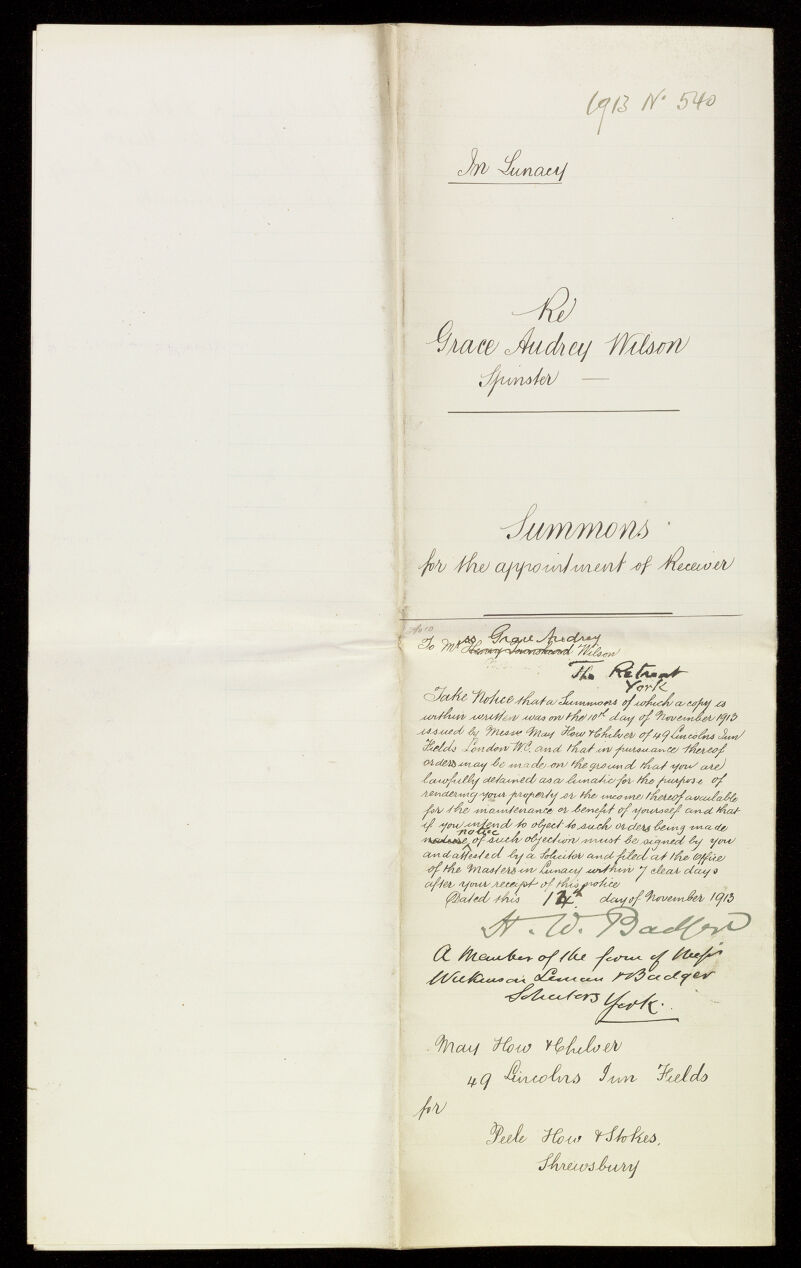 1913 No 540
In Lunacy
Re
Grace Audrey Wilson
Spinster —
Summons
for the appointment of Receiver
ss Grace Audrey
To Mr Henry Townshend Wilson
The Retreat
York
Take Notice that a Summons of which a copy is
within written was on the 10th day of November 1913
issued by Messrs May How & Chilver of 49 Lincolns Inn
Fields London W.C. and that in pursuance thereof
orders may be made on the ground that you are
lawfully detained as a lunatic for the purpose of
rendering your property or the income thereof available
for the maintenance or benefit of yourself and that
if you intend to object to such orders being made
notice
of such objection must be signed by you
and attested by a Solicitor and filed at the Office
of the Masters in Lunacy within 7 clear days
after your receipt of this notice
Dated this 14th day of November 1913
H. W. Badger
A Member of the firm of Messrs
Wilkinson Leman & Badger
Solicitors York.
May How & Chilver
49 Lincolns Inn Fields
for
Peele How & Stokes.
Shrewsbury